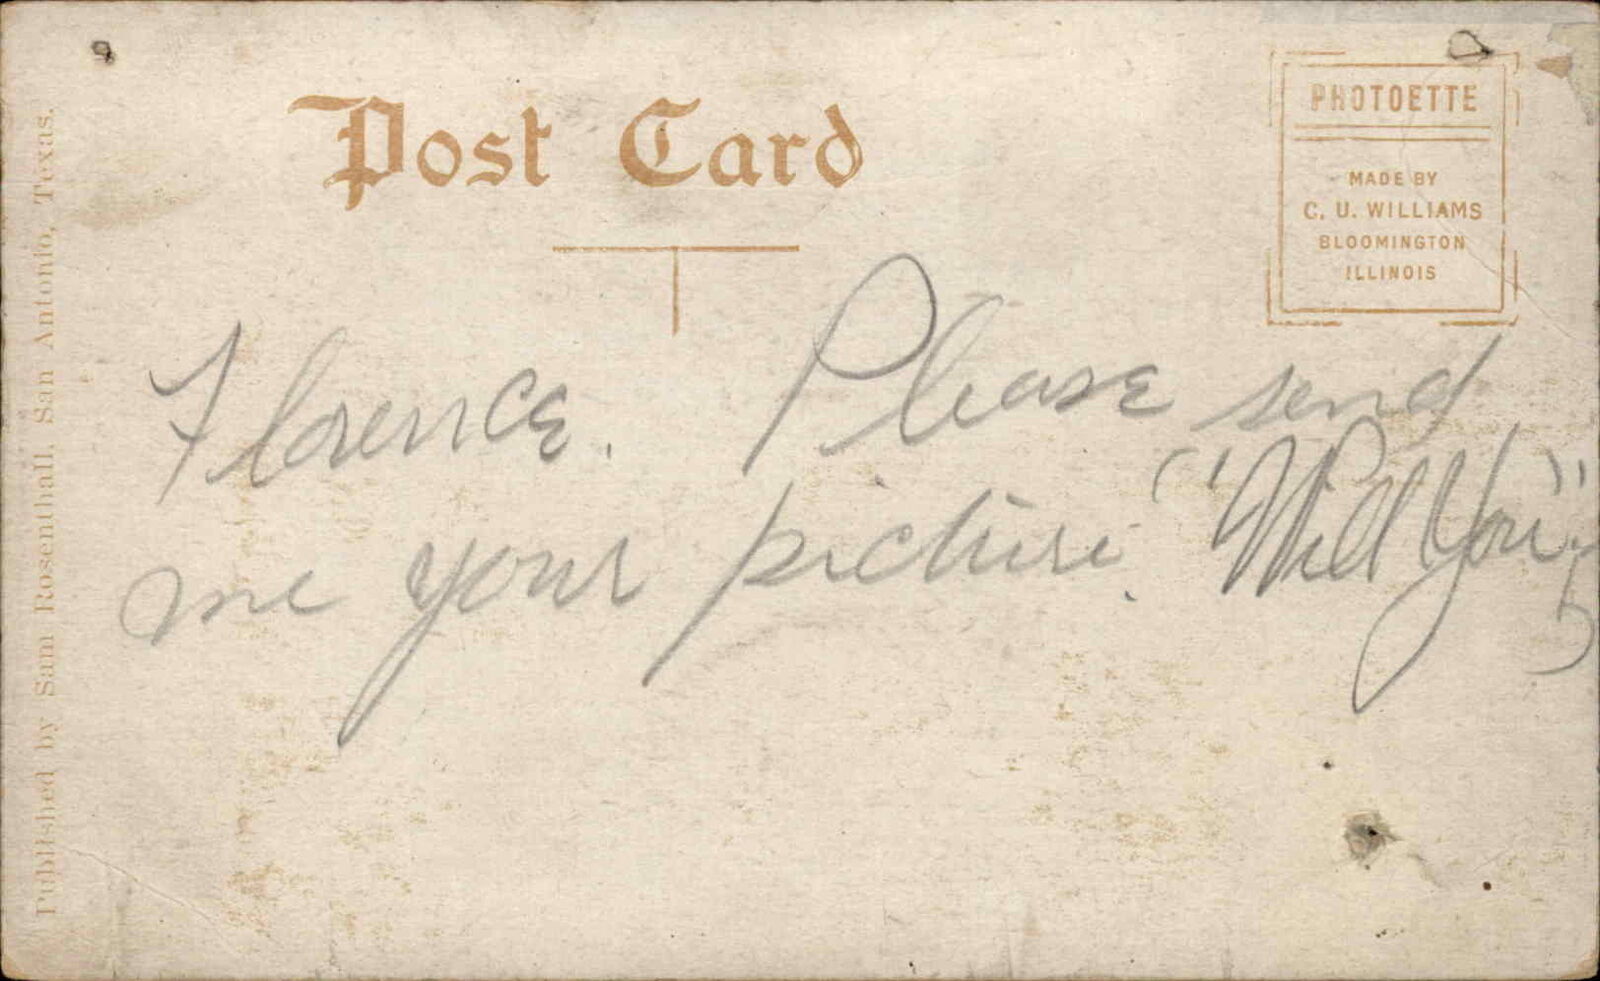 Post Card
PHOTOETTE
MADE BY
C. U. WILLIAMS
BLOOMINGTON
ILLINOIS
Published by Sam Rosenthall, San Antonio, Texas.
Florence. Please send
me your picture. ("Will You")